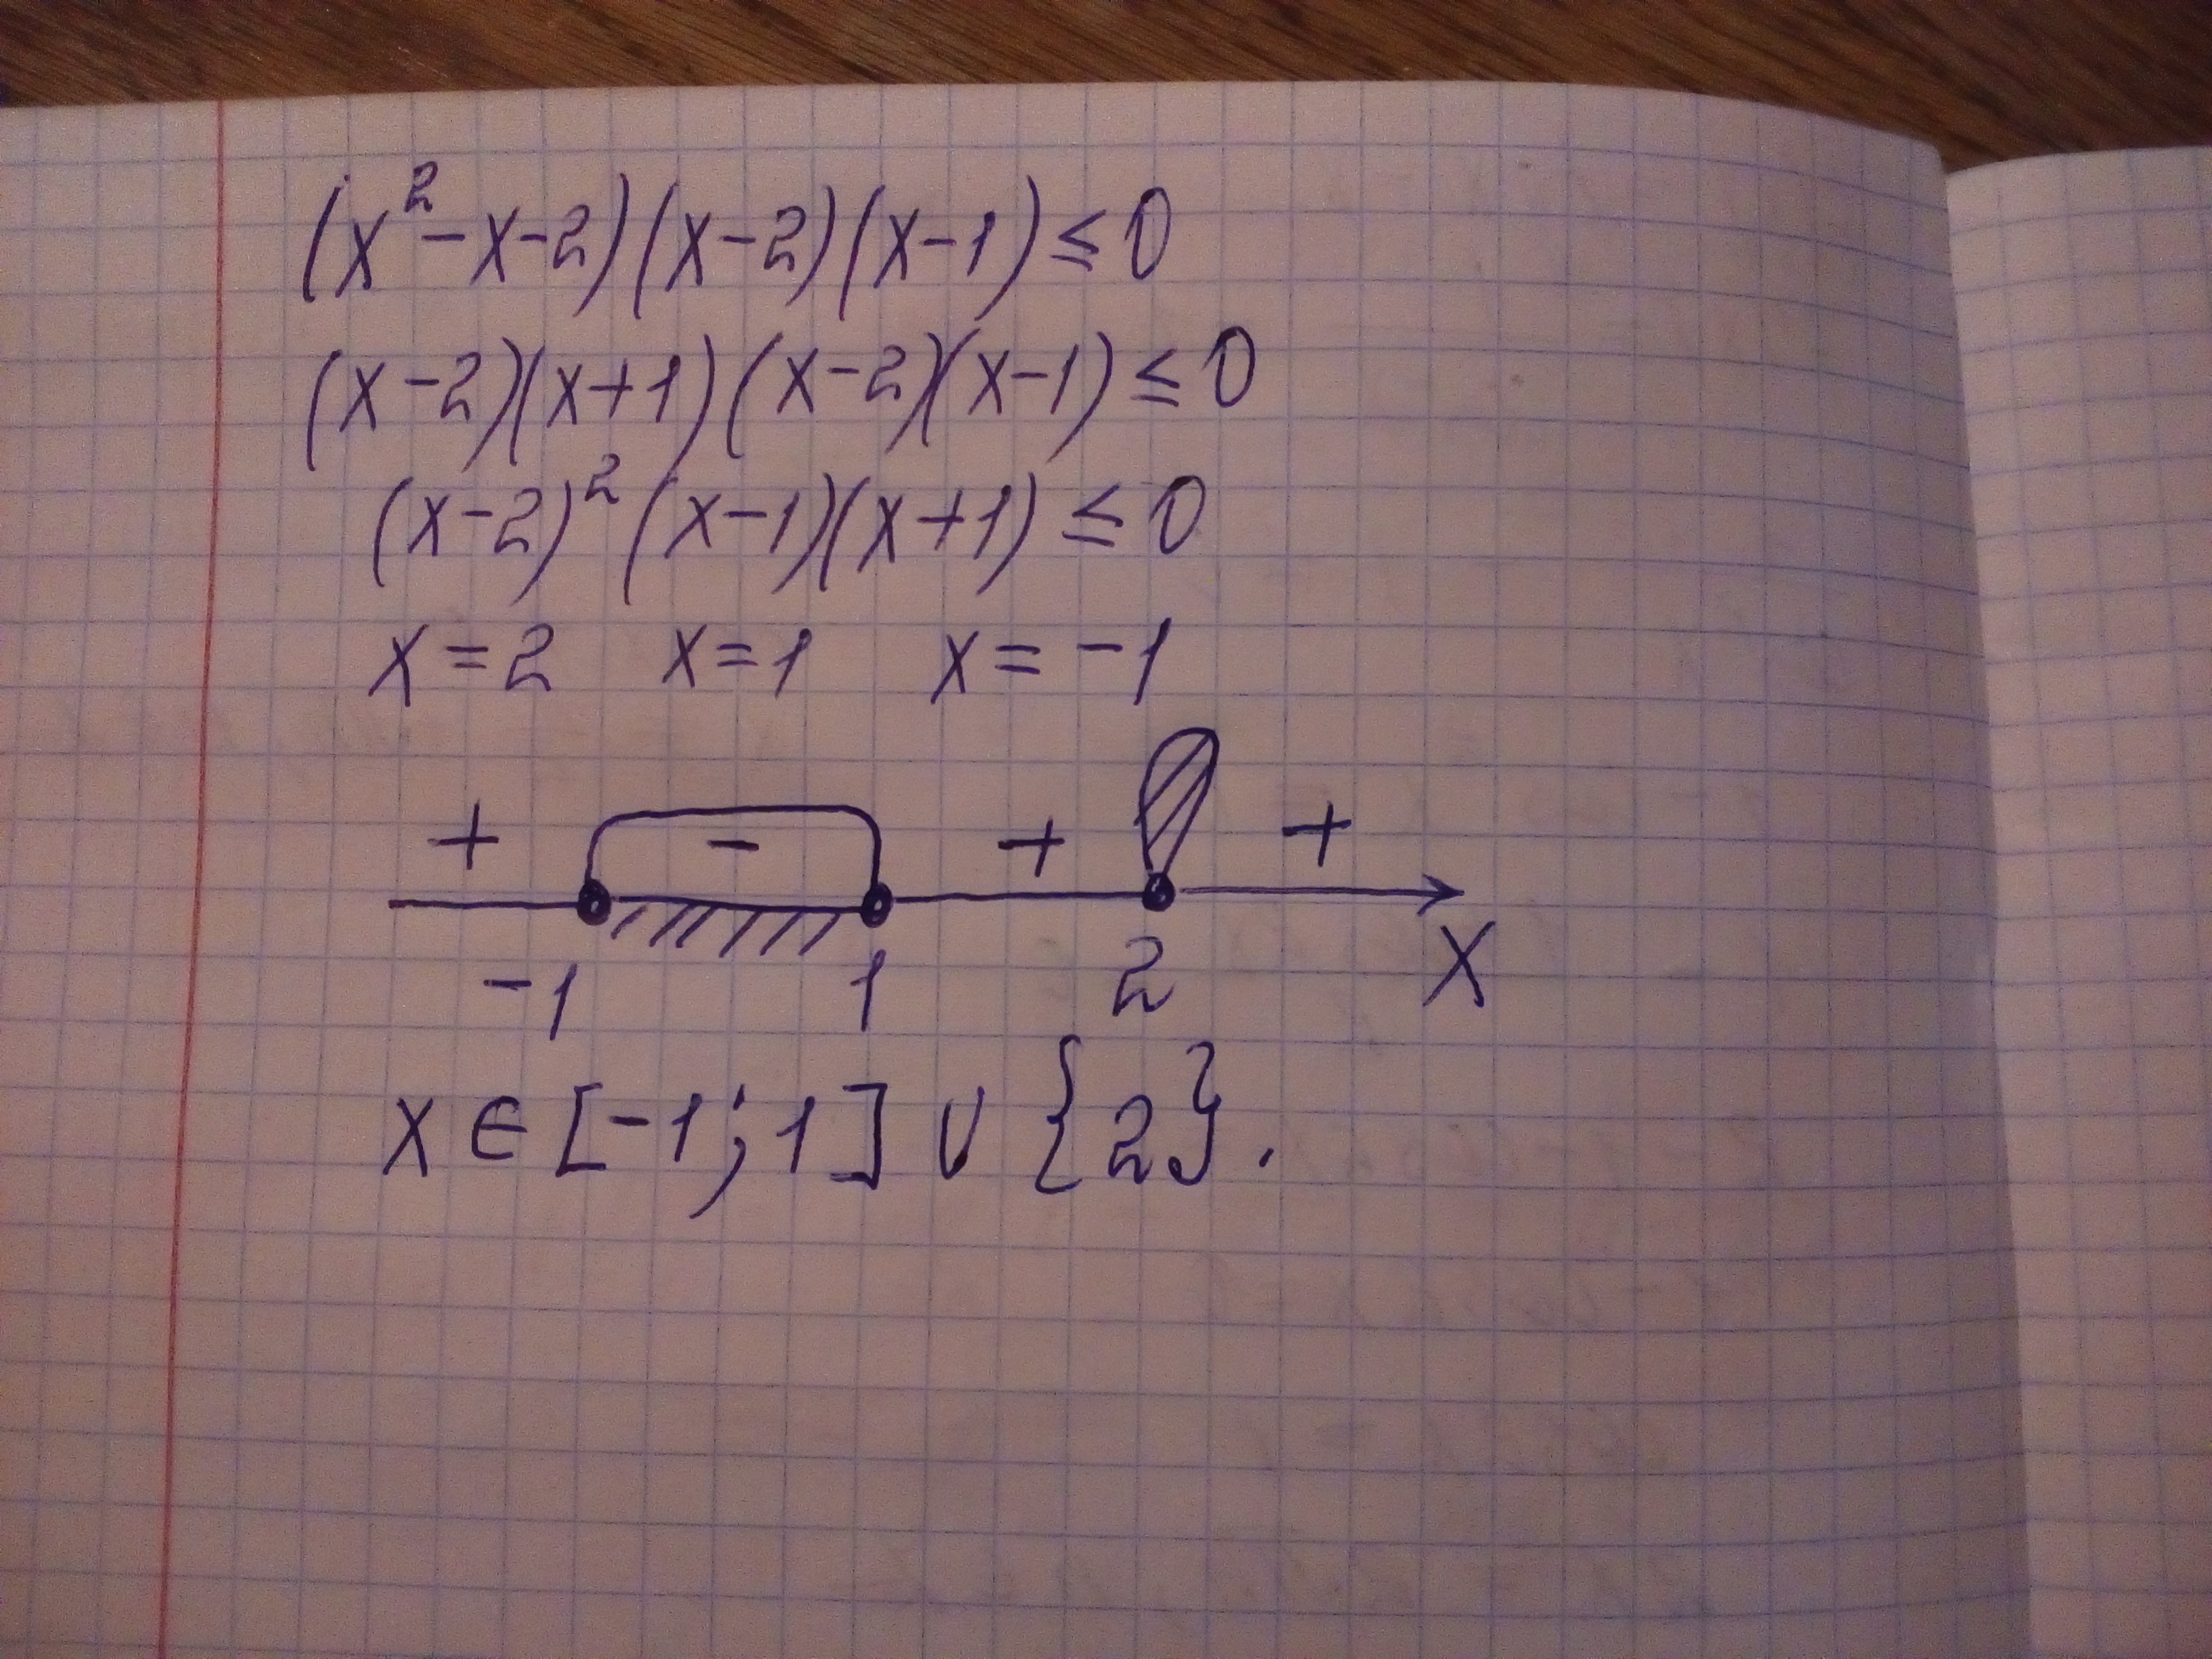 (x²-x-2)(x-2)(x-1)≤0
(x-2)(x+1)(x-2)(x-1)≤0
(x-2)²(x-1)(x+1)≤0
x=2 x=1 x=-1
+ - + +
-1 1 2 x
x∈[-1;1]∪{2}.